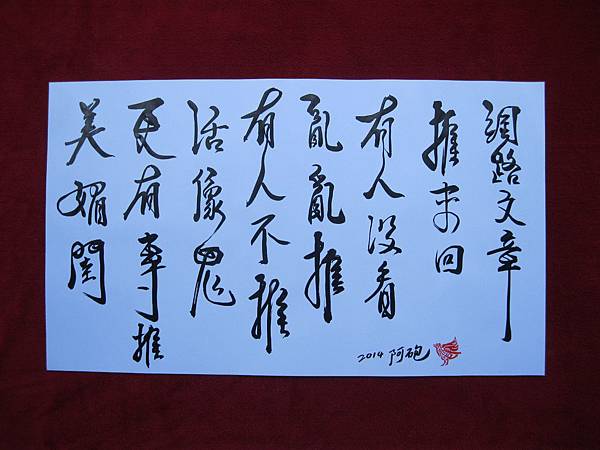 網路文章
推來回
有人沒看
亂亂推
有人不推
活像鬼
更有專推
美媚閨
2014 阿砲